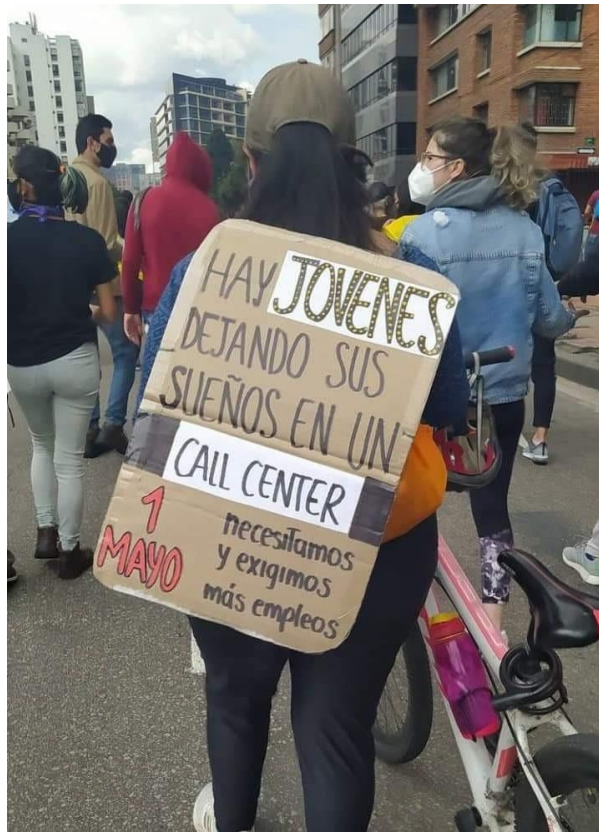 HAY JOVENES
DEJANDO SUS
SUEÑOS EN UN
CALL CENTER
1
MAYO
necesitamos
y exigimos
más empleos